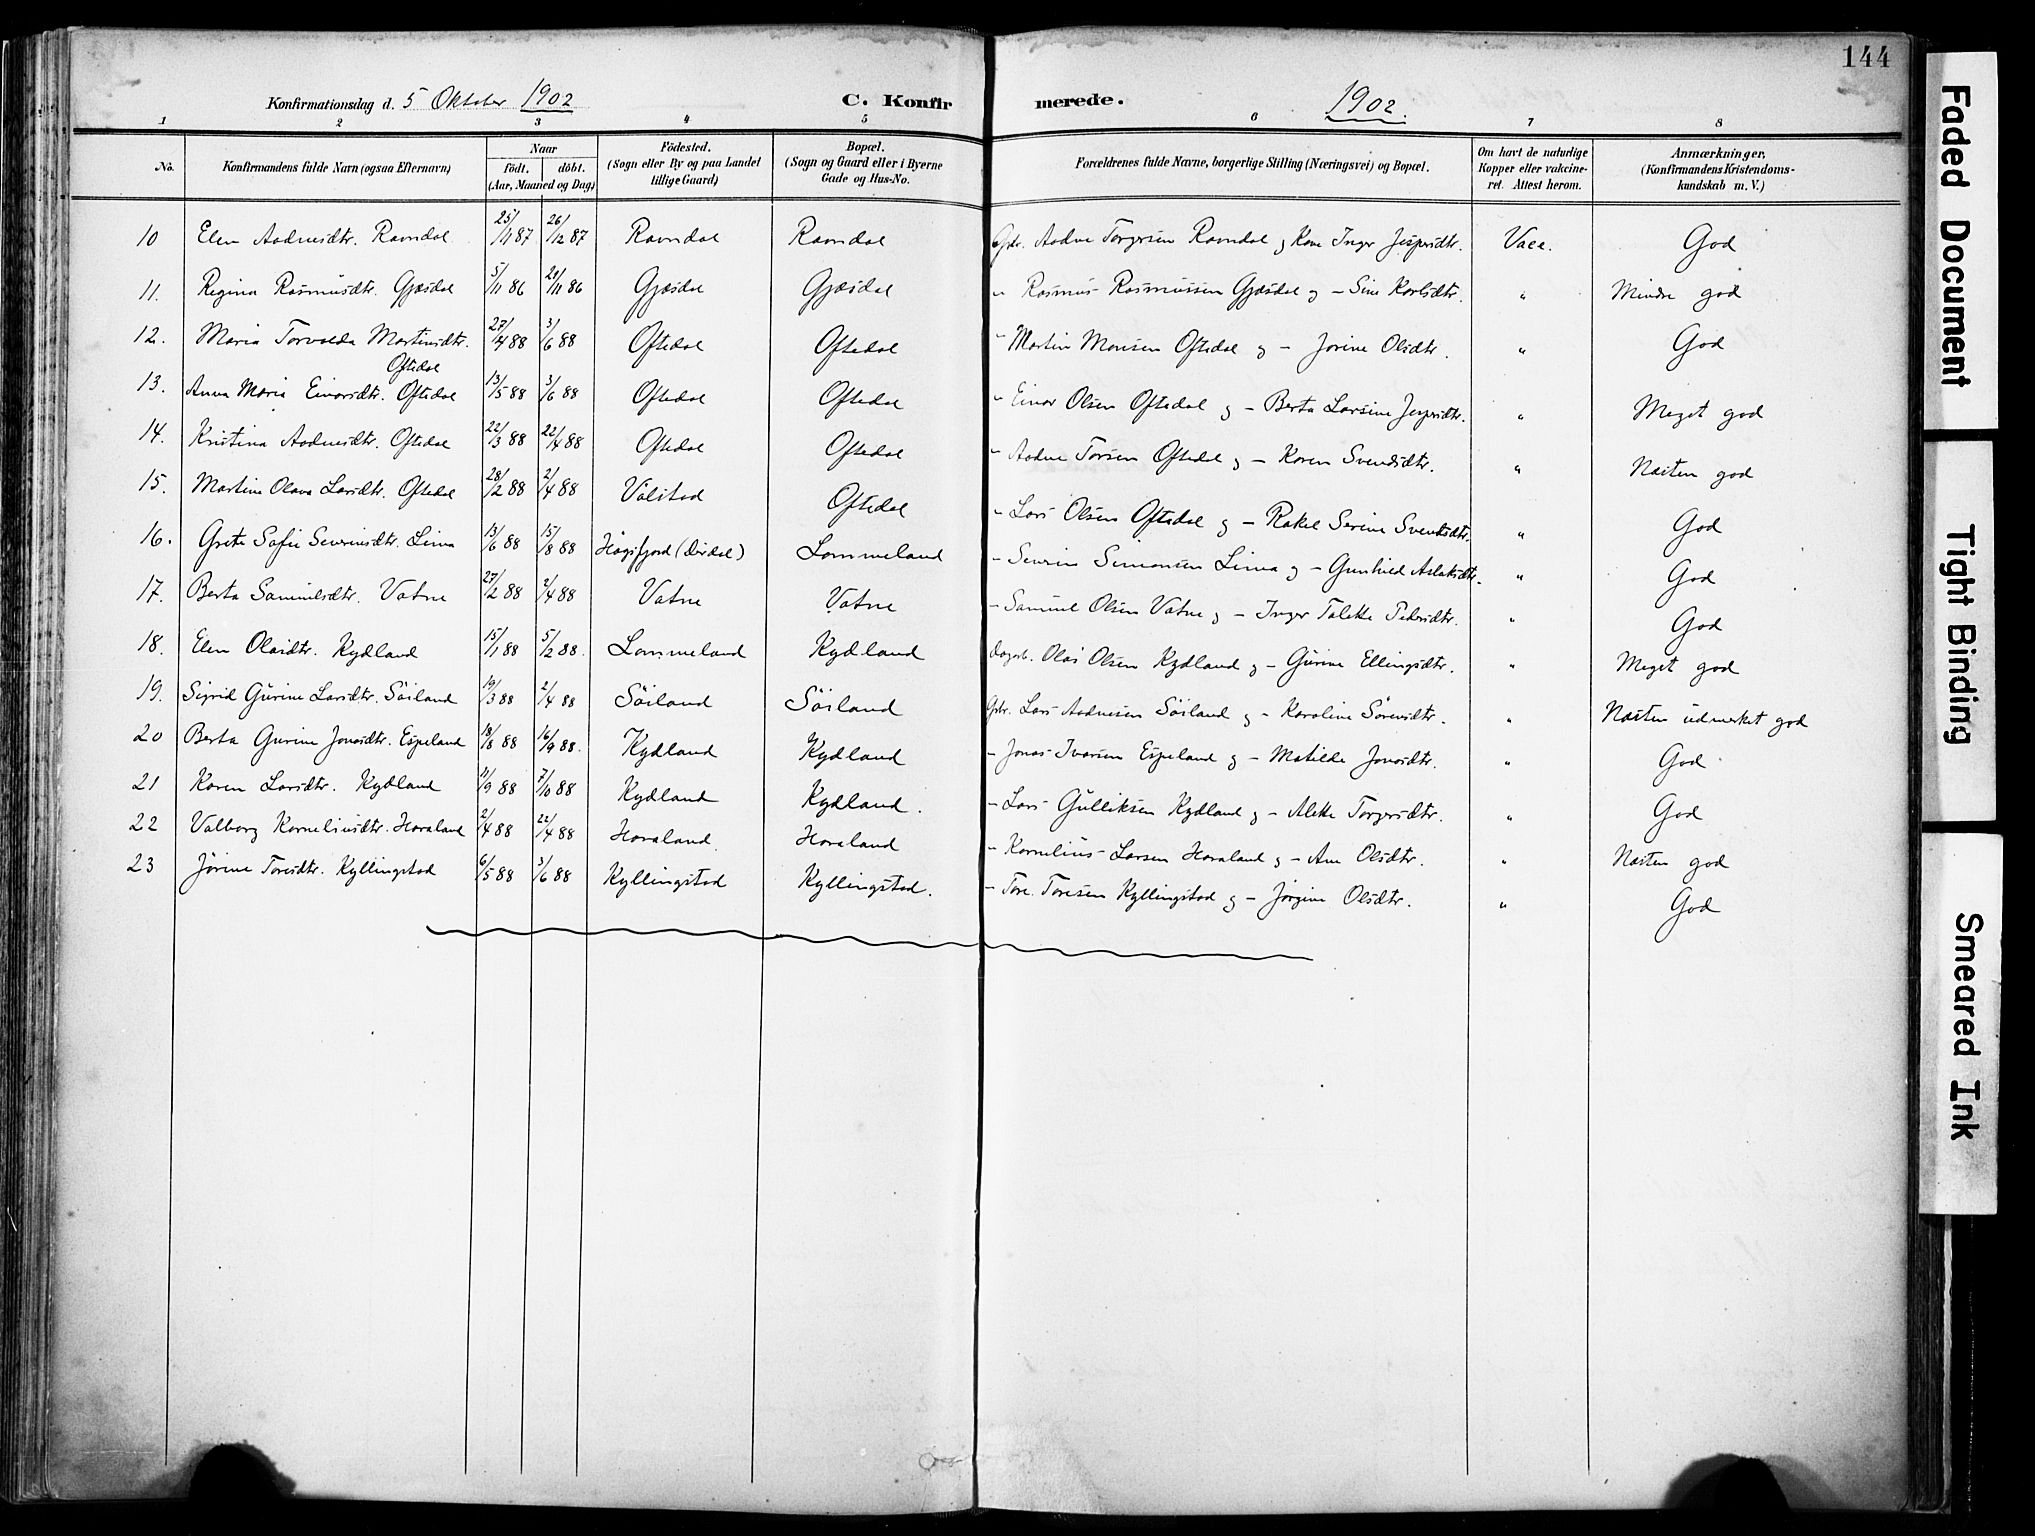 144
Konfirmationsdag d. 5 Oktober 1902 C. Konfir merede. 1902.
1 2 3 4 5 6 7 8
No. Konfirmandens fulde Navn (ogsaa Efternavn) Naar födt. döbt. (Aar, Maaned og Dag) Födested. (Sogn eller By og paa Landet tillige Gaard) Bopæl. (Sogn og Gaard eller i Byerne Gade og Hus-No. Forældrenes fulde Navne, borgerlige Stilling (Næringsvei) og Bopæl. Om havt de naturlige Kopper eller vakcineret. Attest herom. Anmærkninger. (Konfirmandens Kristendomskundskab m. V.)
10 Elen Aadnesdtr. Ravndal 25/11 87 26/12 87 Ravndal Ravndal Gbr. Aadne Torgersen Ravndal og Kone Inger Jespersdtr. Vacc. God
11. Regina Rasmusdtr. Gjæsdal 5/11 86 21/11 86 Gjæsdal Gjæsdal " Rasmus Rasmussen Gjæsdal og – Sine Karlsdtr. " Mindre god
12. Maria Torvalda Martinsdtr. Oftedal 27/4 88 3/6 88 Oftedal Oftedal " Martin Monsen Oftedal og – Jorine Olsdtr. " God
13. Anna Maria Einarsdtr. Oftedal 13/5 88 3/6 88 Oftedal Oftedal " Einar Olsen Oftedal og – Berta Larsine Jespersdtr. " Meget god
14. Kristina Aadnesdtr. Oftedal 22/3 88 22/4 88 Oftedal Oftedal " Aadne Torsen Oftedal og – Karen Svendsdtr. " Næsten god
15. Martine Olava Larsdtr. Oftedal 28/2 88 2/4 88 Oftedal " Lars Olsen Oftedal og – Rakel Serine Svendsdtr. " God
16. Grete Sofie Severinsdtr. Lima 13/6 88 15/8 88 Høgsfjord (Dirdal) Lommeland – Severin Simonsen Lima og – Gunhild Aslaksdtr. " God
17. Berta Samuelsdtr. Vatne 27/2 88 2/4 88 Vatne Vatne – Samuel Olsen Vatne og – Inger Talette Pedersdtr. " God
18. Elen Olaisdtr. Kydland 15/1 88 5/2 88. Lommeland Kydland Dagarb. Olai Olsen Kydland og – Gurine Ellingsdtr. " Meget god
19. Sigrid Gurine Larsdtr. Söiland 19/3 88 2/4 88 Söiland Söiland Gbr. Lars Aadnesen Söiland og – Karoline Sörensdtr. " Næsten udmerket god
20 Berta Gurine Jonasdtr. Espeland 18/8 88 16/9 88. Kydland Kydland – Jonas Ivarsen Espeland og – Matilde Jonasdtr. " God
21 Karen Larsdtr. Kydland 11/9 88 7/10 88 Kydland Kydland. – Lars Gulliksen Kydland og – Alette Torgersdtr. " God
22 Valborg Korneliusdtr. Haraland 2/4 88 22/4 88 Haraland. Haraland " Kornelius Larsen Haraland og – Ane Olsdtr. " Næsten god
23 Jørine Toresdtr. Kyllingstad 6/5 88 3/6 88 Kyllingstad Kyllingstad. – Tore Toresen Kyllingstad og – Jørgine Olsdtr. " God
Faded Document
Tight Binding
Smeared Ink